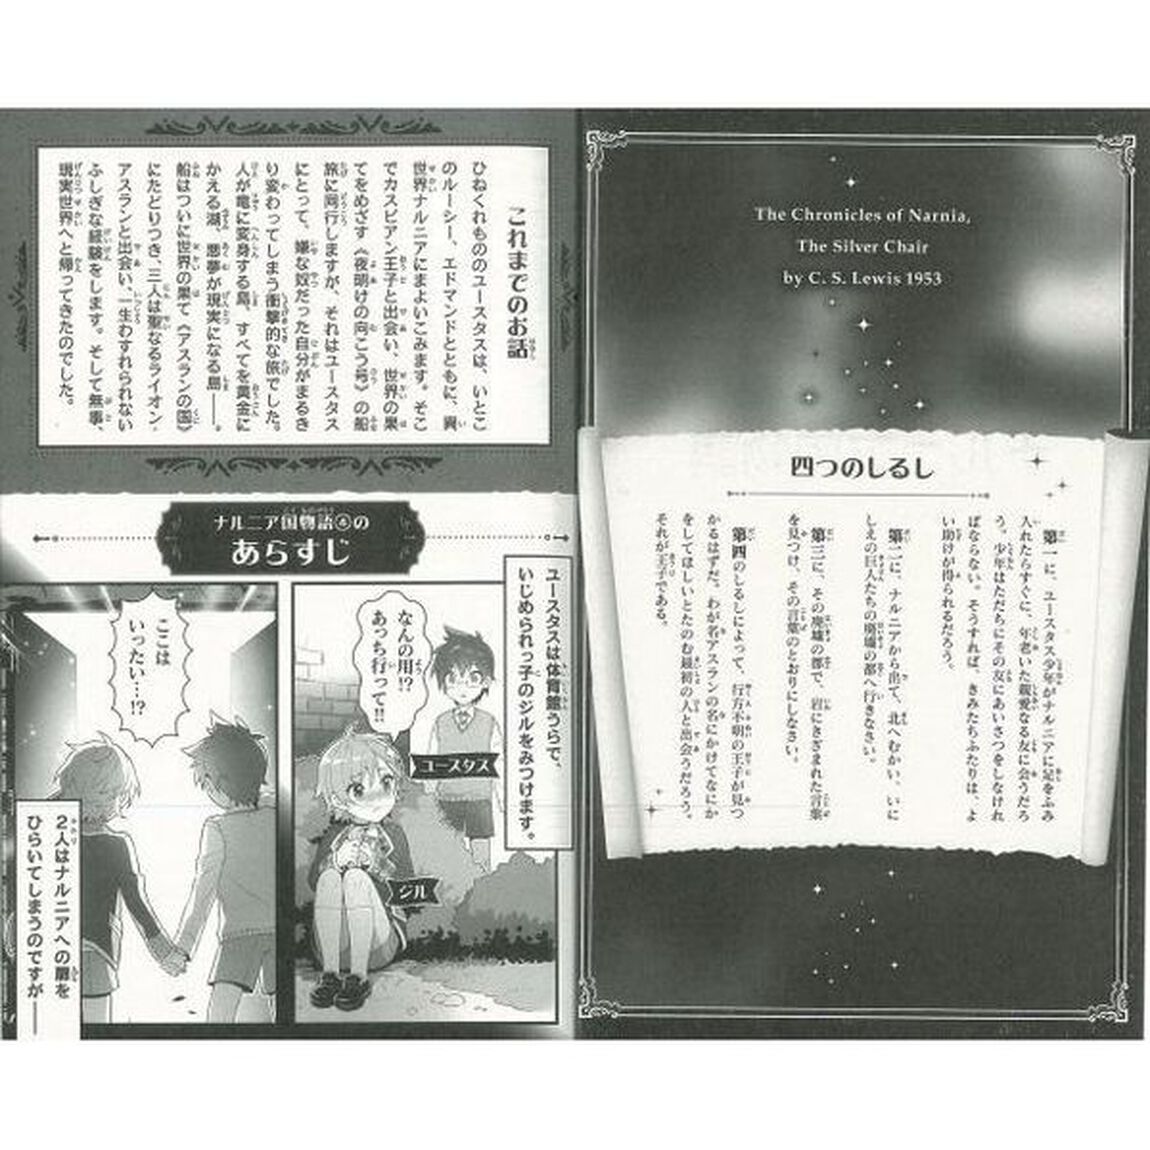 The Chronicles of Narnia,
The Silver Chair
by C. S. Lewis 1953
四つのしるし
第一に、ユースタス少年がナルニアに足をふみ
入れたらすぐに、年老いた親愛なる友に会うだろ
う。少年はただちにその友にあいさつをしなけれ
ばならない。そうすれば、きみたちふたりは、よ
い助けが得られるだろう。
第二に、ナルニアから出て、北へむかい、いに
しえの巨人たちの廃墟の都へ行きなさい。
第三に、その廃墟の都で、岩にきざまれた言葉
を見つけ、その言葉のとおりにしなさい。
第四のしるしによって、行方不明の王子が見つ
かるはずだ。わが名アスランの名にかけてなにか
をしてほしいとたのむ最初の人と出会うだろう。
それが王子である。
これまでのお話
ひねくれもののユースタスは、いとこ
のルーシー、エドマンドとともに、異
世界ナルニアにまよいこみます。そこ
でカスピアン王子と出会い、世界の果
てをめざす《夜明けの向こう号》の船
旅に同行しますが、それはユースタス
にとって、嫌な奴だった自分がまるき
り変わってしまう衝撃的な旅でした。
人が竜に変身する島、すべてを黄金に
かえる湖、悪夢が現実になる島――。
船はついに世界の果て《アスランの国》
にたどりつき、三人は聖なるライオン・
アスランと出会い、一生わすれられない
ふしぎな経験をします。そして無事、
現実世界へと帰ってきたのでした。
ナルニア国物語④の
あらすじ
ユースタスは体育館うらで、
いじめられっ子のジルをみつけます。
なんの用!?
あっち行って!!
ユースタス
ジル
ここは
いったい…!?
2人はナルニアへの扉を
ひらいてしまうのですが――